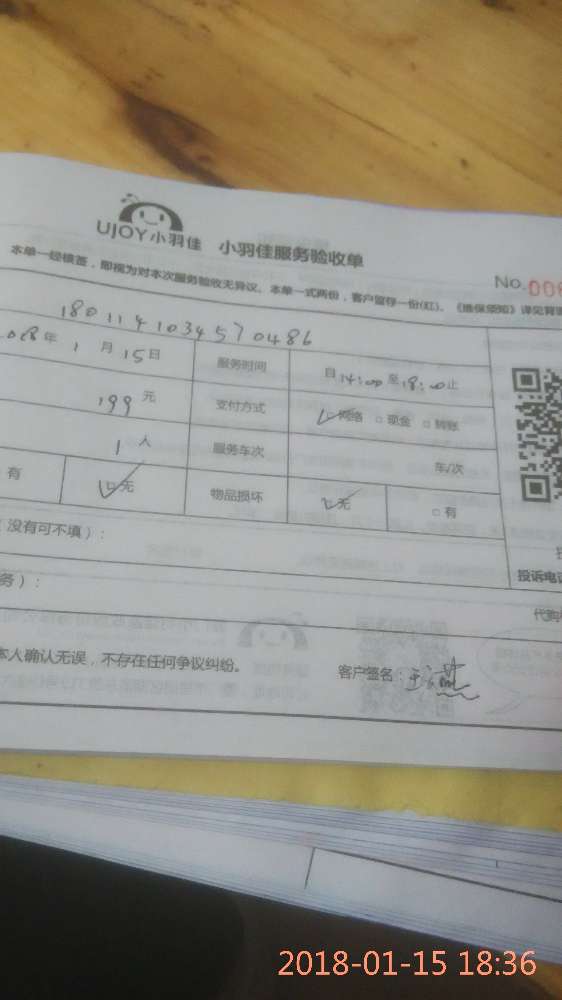 UJOY小羽佳 小羽佳服务验收单
本单一经核签，即视为对本次服务验收无异议。本单一式两份，客户留存一份(红)。《维保须知》详见背
No.00
1801141034570486
年 1 月 15日 服务时间 自 14:00 至 18:00 止
199 元 支付方式 网络 现金 转账
1 人 服务车次 车/次
有 无 物品损坏 无 有
(没有可不填)：
投诉电
务)： 代购
本人确认无误，不存在任何争议纠纷。 客户签名：王
2018-01-15 18:36